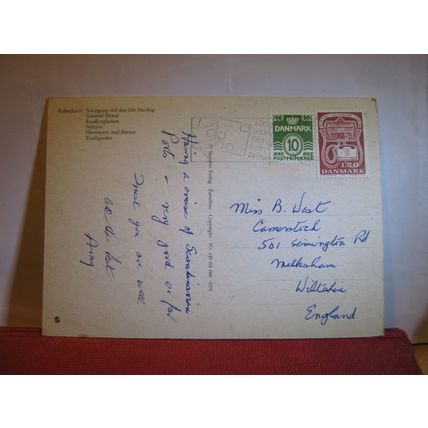 København: Solnedgang ved den lille Havfrue
Gammel Strand
Raadhuspladsen
Nyhavn
Havneparti med Børsen
Tivoligarden
Having a cruise of Scandinavian
Ports - very good so far
Trust you are well
All the best
Amy
DANMARK
10
ØRE ØRE
POSTFRIMÆRKE
1.20
DANMARK
Miss B. West
501 Semington Rd
Melksham
Wiltshire
England